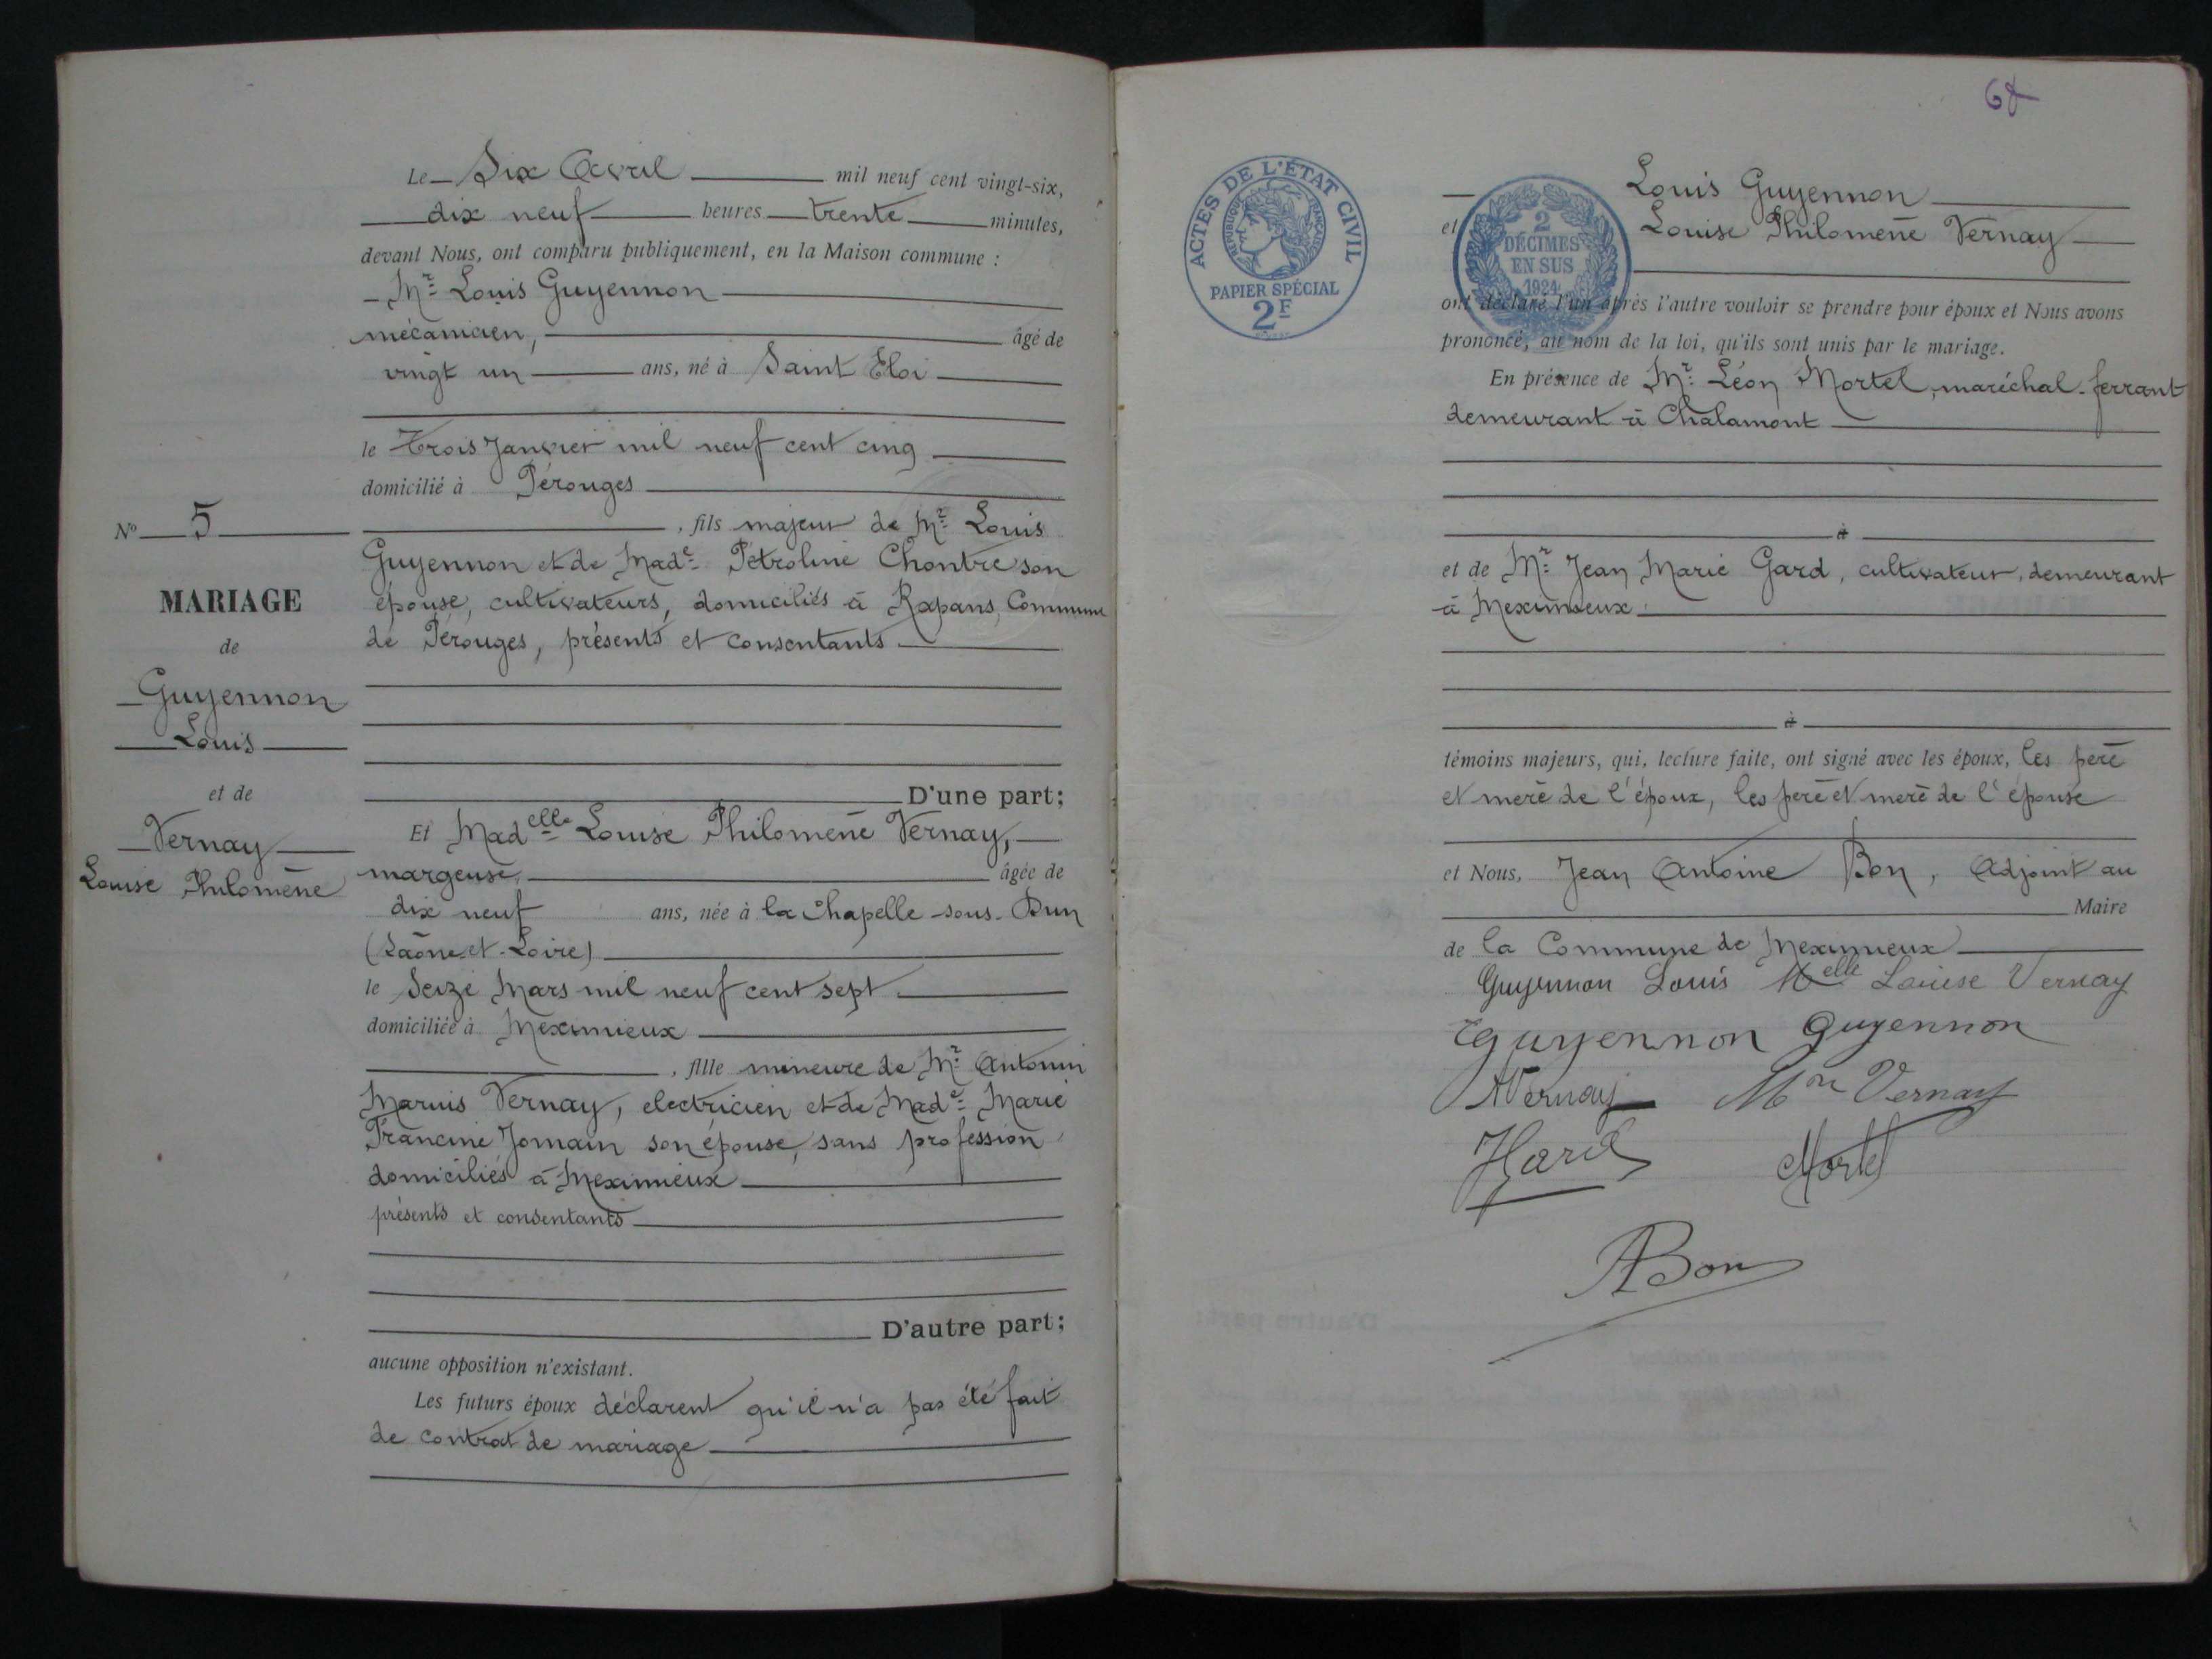 Le Six Avril mil neuf cent vingt-six,
dix neuf heures trente minutes,
devant Nous, ont comparu publiquement, en la Maison commune :
Mr Louis Guyennon
mécanicien, âgé de
vingt un ans, né à Saint Eloi
le Trois Janvier mil neuf cent cinq
domicilié à Pérouges
, fils majeur de Mr Louis
Guyennon et de Made Pétroline Chontre son
épouse, cultivateurs, domiciliés à Rapans, Commune
de Pérouges, présents et consentants
No 5
MARIAGE
de
Guyennon
Louis
et de
Vernay
Louise Philomène
D'une part;
Et Madelle Louise Philomène Vernay,
margeuse, âgée de
dix neuf ans, née à la Chapelle-sous-Dun
(Saône-et-Loire)
le Seize Mars mil neuf cent sept
domiciliée à Meximieux
, fille mineure de Mr Antonin
Marius Vernay, electricien et de Made Marie
Francine Jomain son épouse, sans profession
domiciliés à Meximieux
présents et consentants
D'autre part;
aucune opposition n'existant.
Les futurs époux déclarent qu'il n'a pas été fait
de contrat de mariage
ACTES DE L'ÉTAT CIVIL
RÉPUBLIQUE FRANÇAISE
PAPIER SPÉCIAL
2F
2
DÉCIMES
EN SUS
1924
Louis Guyennon
et Louise Philomène Vernay
ont déclaré l'un après l'autre vouloir se prendre pour époux et Nous avons
prononcé, au nom de la loi, qu'ils sont unis par le mariage.
En présence de Mr Léon Mortel, maréchal-ferrant
demeurant à Chalamont
à
et de Mr Jean Marie Gard, cultivateur, demeurant
à Meximieux
à
témoins majeurs, qui, lecture faite, ont signé avec les époux, les père
et mère de l'époux, les père et mère de l'épouse
et Nous, Jean Antoine Bon, Adjoint au
Maire
de la Commune de Meximieux
Guyennon Louis Melle Louise Vernay
Guyennon Guyennon
AVernay Mme Vernay
Mortel
ABon